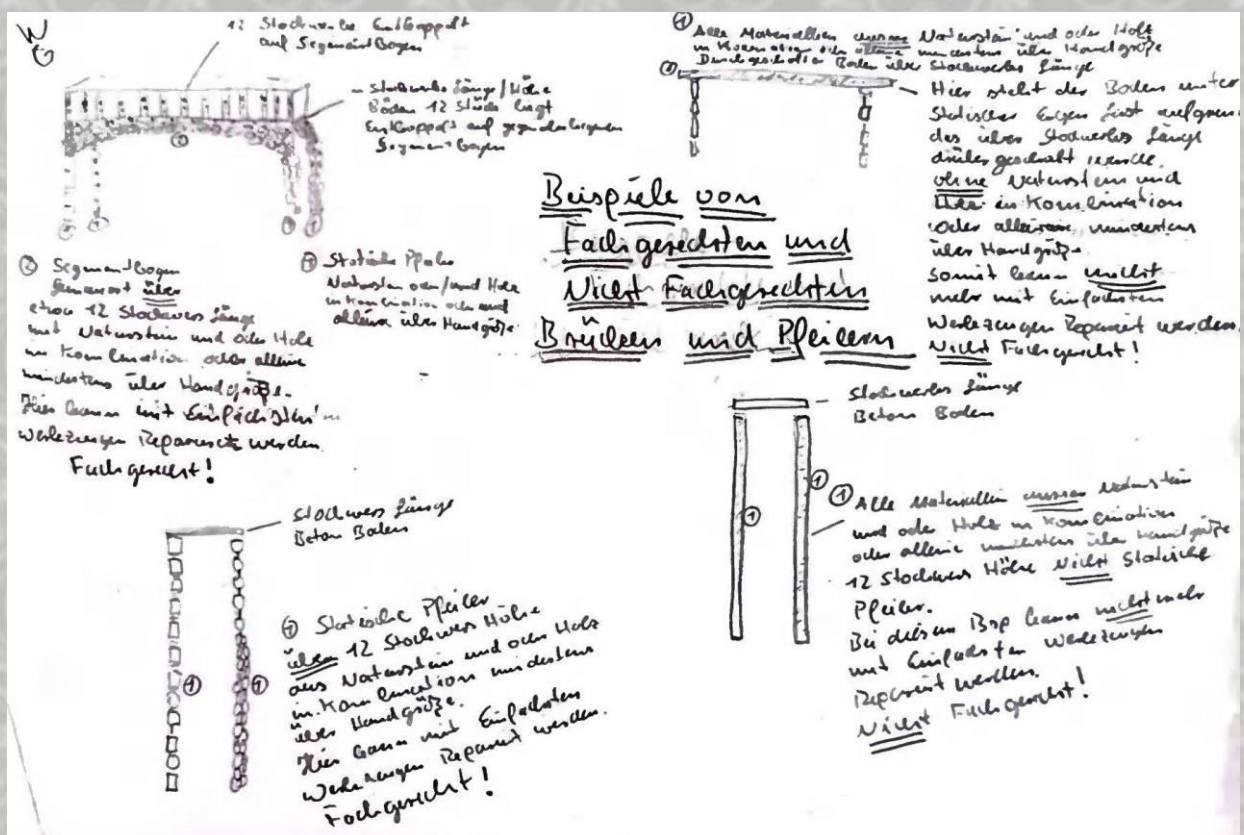 W
G
12 Stockwerke Entkoppelt
auf Segmentbogen
Stockwerks Länge/Höhe
Böden 12 Stück liegt
Entkoppelt auf
Segmentbogen
② Segmentbogen
über
etwa 12 Stockwers Länge
mit Naturstein und oder Holz
in Kombination oder alleine
mindestens über Handgröße.
Hier kann mit Einfachsten
Werkzeugen Repariert werden.
Fachgerecht!
① Statische Pfeiler
Naturstein oder/und Holz
in Kombination oder und
alleine über Handgröße
Beispiele von
Fachgerechten und
Nicht Fachgerechten
Brücken und Pfeilern
① Alle Materialien ausser Naturstein und oder Holz
in Kombination oder alleine mindestens über Handgröße
② Boden über Stockwerks Länge
Hier steht der Boden unter
Statischer
das über Stockwerks Länge
wurde
ohne Naturstein und
in Kombination
oder alleine, mindestens
über Handgröße.
Somit kann nicht
mehr mit Einfachsten
Werkzeugen Repariert werden.
Nicht Fachgerecht!
Stockwerks Länge
Beton Boden
① Alle Materialien ausser Naturstein
und oder Holz in Kombination
oder alleine mindesten über Handgröße
12 Stockwers Höhe Nicht Statische
Pfeiler.
Bei diesem Bsp kann nicht mehr
mit Einfachsten Werkzeugen
Repariert werden.
Nicht Fachgerecht!
Stockwers Länge
Beton Boden
① Statische Pfeiler
über 12 Stockwers Höhe
aus Naturstein und oder Holz
in Kombination mindestens
über Handgröße.
Hier kann mit Einfachsten
Werkzeugen Repariert werden.
Fachgerecht!